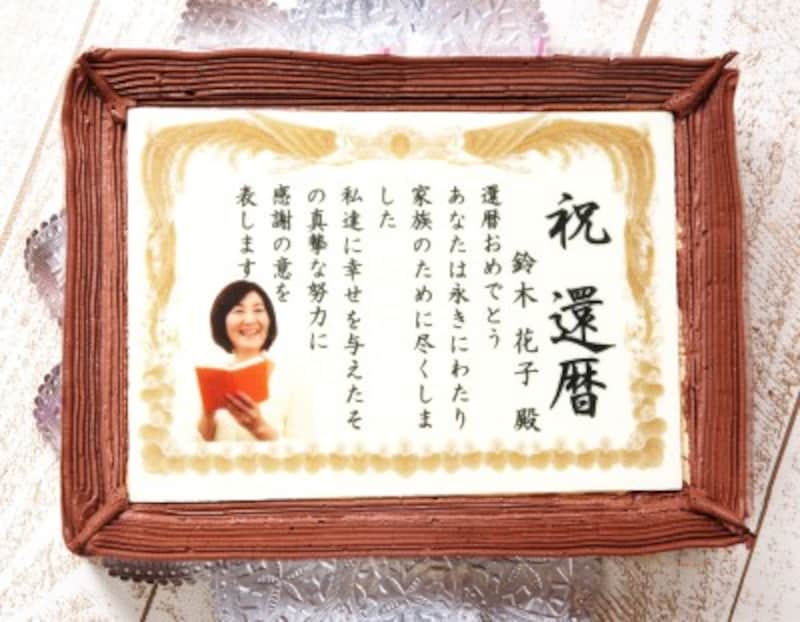 祝 還暦
鈴木 花子 殿
還暦おめでとう
あなたは永きにわたり
家族のために尽くしま
した
私達に幸せを与えたそ
の真摯な努力に
感謝の意を
表します